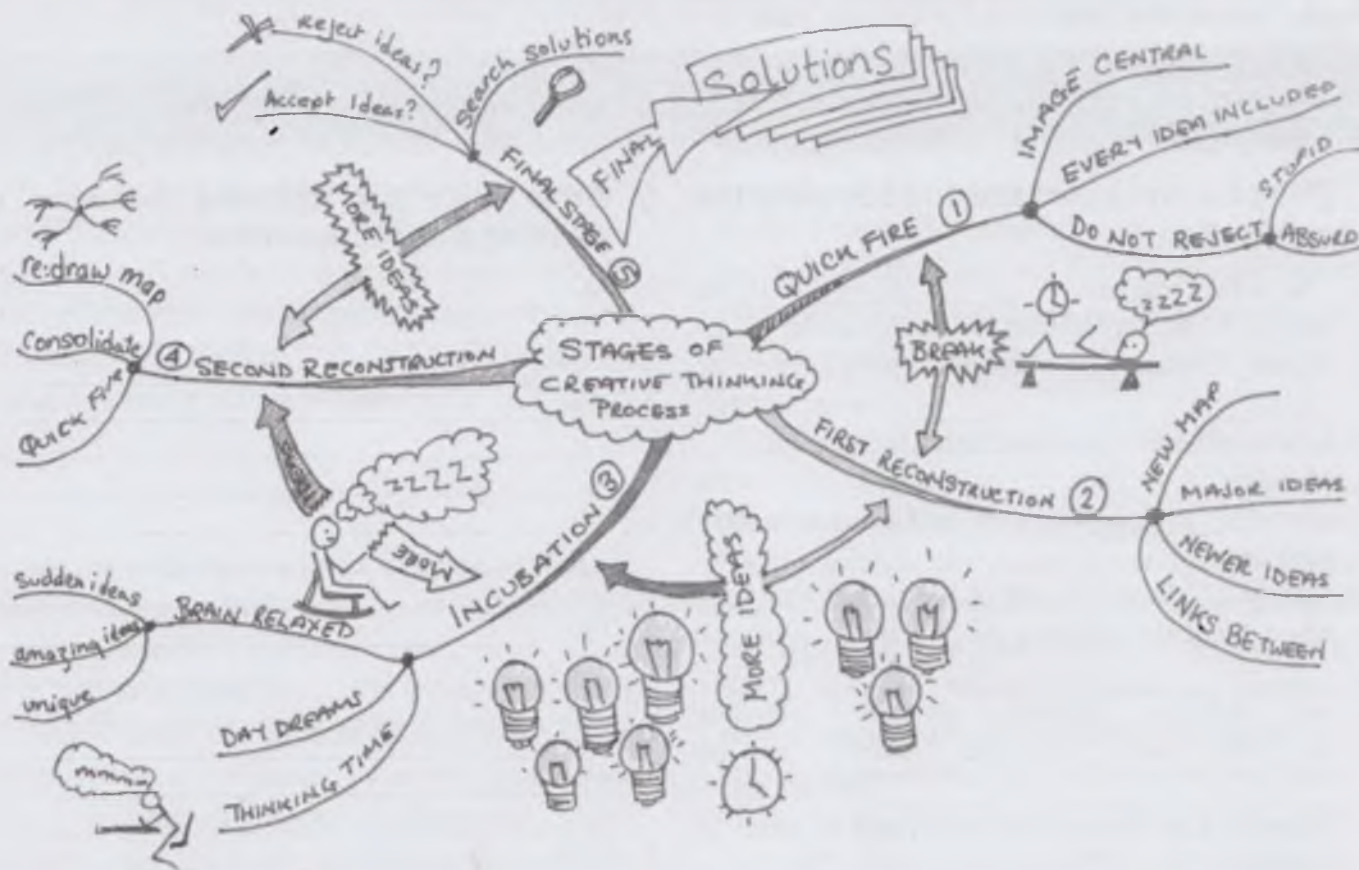 STAGES OF
CREATIVE THINKING
PROCESS
QUICK FIRE ①
IMAGE CENTRAL
EVERY IDEA INCLUDED
DO NOT REJECT
STUPID
ABSURD
BREAK
ZZZZ
FIRST RECONSTRUCTION ②
NEW MAP
MAJOR IDEAS
NEWER IDEAS
LINKS BETWEEN
MORE IDEAS
INCUBATION ③
BRAIN RELAXED
sudden ideas
amazing ideas
unique
DAY DREAMS
THINKING TIME
mmmm
ZZZZ
MORE
④ SECOND RECONSTRUCTION
re:draw map
consolidate
QUICK FIRE
MORE IDEAS
FINAL STAGE ⑤
Reject ideas?
Accept Ideas?
Search solutions
FINAL
Solutions